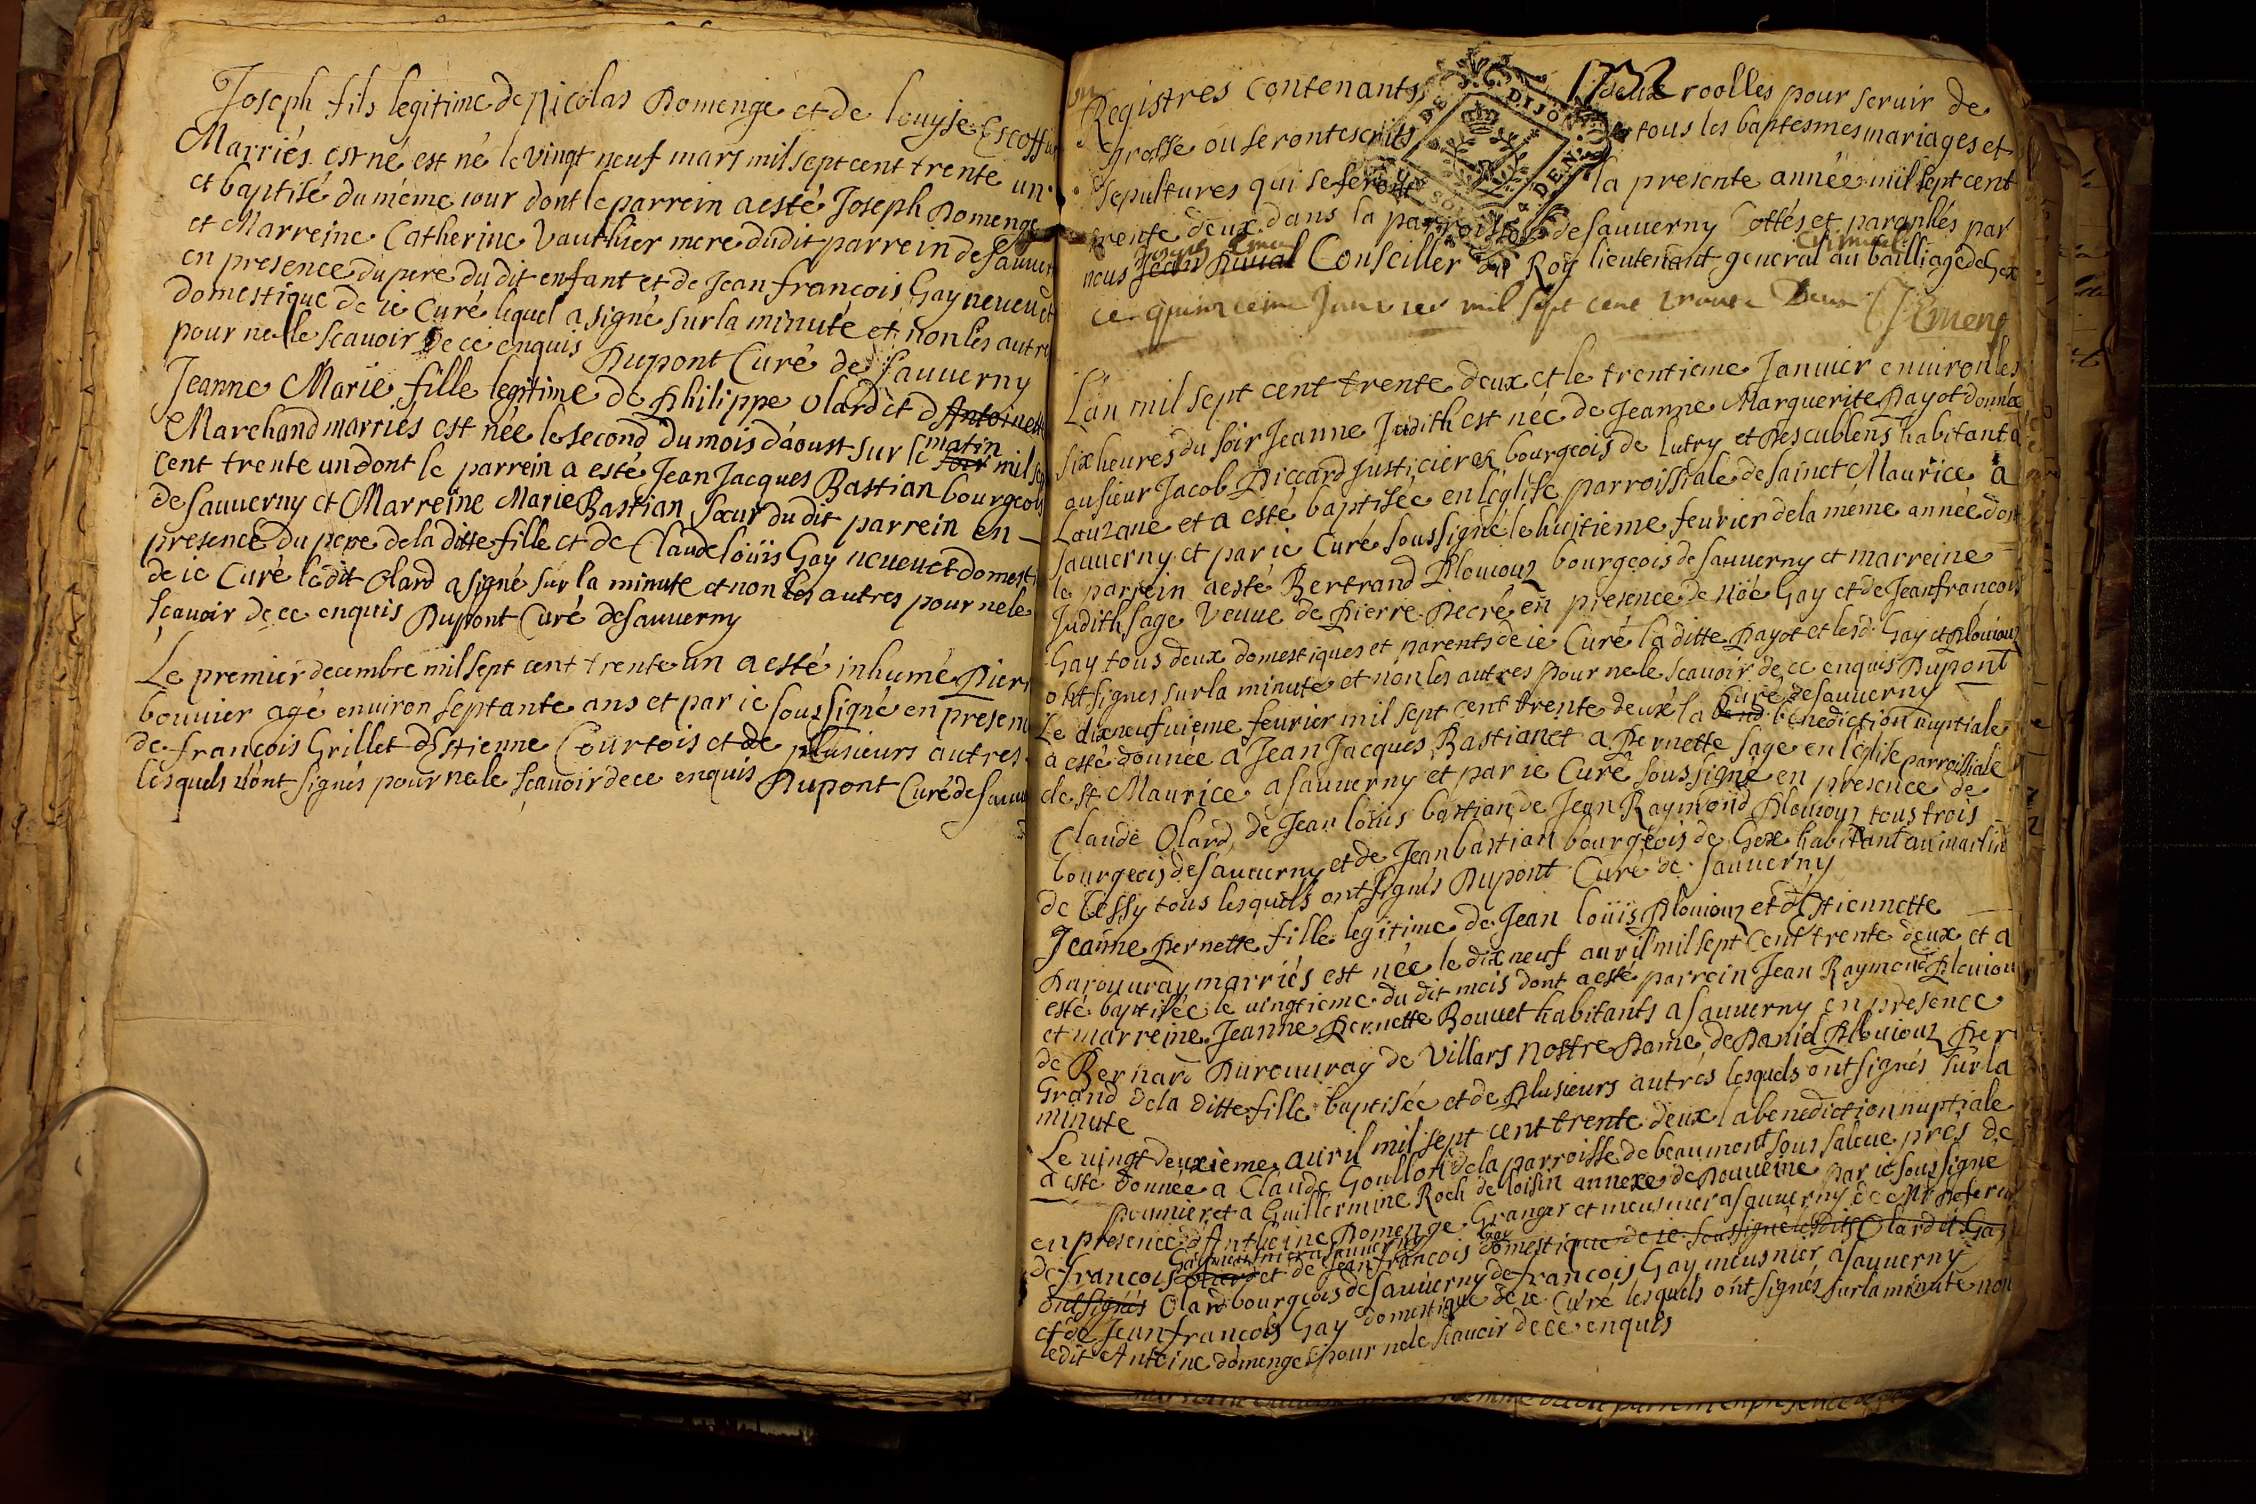 Joseph fils legitime de Nicolas Domenge et de louyse Escoffi
Marriés est né est né le vingt neuf mars mil sept cent trente un
et baptisé du méme iour dont le parrein a esté Joseph Domenge
et Marreine Catherine Vauthier mere dudit parrein de sauuer
en presence du pere du dit enfant et de Jean francois Gay neueu et
domestique de ie Curé lequel a signé sur la minute et non les autr
pour ne le scauoir de ce enquis Dupont Curé de sauuerny
Jeanne Marie fille legitime de Philippe olard et d'Antoinett
Marchand marriés est née le second du mois d'aoust sur le matin soir mil se
cent trente un dont le parrein a esté Jean Jacques Bastian bourgeois
de sauuerny et Marreine Marie Bastian sœur du dit parrein en
presence du pere de la ditte fille et de Claude loüis Gay neueu et domesti
de ie Curé le dit olard a signé sur la minute et non les autres pour ne le
scauoir de ce enquis Dupont Curé de sauuerny
Le premier decembre mil sept cent trente un a esté inhumé Pierr
bouuier agé enuiron septante ans et par ie soussigné en presen
de francois Grillet d'Estienne Courtois et de plusieurs autres
lesquels n'ont signés pour ne le scauoir de ce enquis Dupont Curé de sauu
1732
Registres contenants deux roolles pour seruir de
grosse ou seront escrits tous les baptesmes mariages et
sepultures qui se feront la presente année mil sept cent
trente deux dans la parroisse de sauuerny Cottés et paraphés par
nous Jean Duual Conseiller du Roy lieutenant general criminel au bailliage de Gex
ce quinzeime Januier mil sept cent trente Deux
DIJON
L'an mil sept cent trente deux et le trentieme Januier enuiron les
six heures du soir Jeanne Judith est née de Jeanne Marguerite Payot donnée
au sieur Jacob Piccard Justicier et bourgeois de Lutry et Descublens habitant a
Lauzane et a esté baptisée en l'eglise parroissiale de sainct Maurice a
sauuerny et par ie Curé soussigné le huitieme feurier de la méme année dont
le parrein a esté Bertrand Plouiouz bourgeois de sauuerny et marreine
Judith sage veuue de Pierre Decré en presence de Noé Gay et de Jean francois
Gay tous deux domestiques et parents de ie Curé la ditte Payot et lesd. Gay et Plouiouz
ont signes sur la minute et non les autres pour ne le scauoir de ce enquis Dupont
Curé de sauuerny
Le dixneufuieme feurier mil sept cent trente deux la bened benediction nuptiale
a esté donnée a Jean Jacques Bastian et a Pernette sage en l'eglise parroissiale
de st Maurice a sauuerny et par ie Curé soussigné en presence de
Claude Olard, de Jean loüis bastian de Jean Raymond Plouiouz tous trois
bourgeois de sauuerny et de Jean bastian bourgeois de Gex habitant au martin
de Cessy tous lesquels ont signés Dupont Curé de sauuerny
Jeanne Pernette fille legitime de Jean loüis Plouiouz et d'Estiennette
Durouuray marriés est née le dix neuf auril mil sept cent trente deux et a
esté baptisée le uingtieme du dit mois dont a esté parrein Jean Raymond Plouiou
et marreine Jeanne Pernette Bouuet habitants a sauuerny en presence
de Bernard Durouuray de Villars nostre Dame de Daniel Plouiouz Per
Grand de la ditte fille baptisée et de Plusieurs autres lesquels ont signés sur la
minute
Le uingt deuxieme auril mil sept cent trente deux la benediction nuptiale
a esté donnée a Claude Goullon de la parroisse de beaumont sous saleue près de
et a Guillermine Roch de loisin annexe de Douueine par ie soussigné
en presence d'Anthoine Domenge Granger et meusnier a sauuerny de
de francois Gay meusnier a sauuerny olard et de Jean francois Gay domestique de ie soussigné le dit Olard et Gay
ont signés Olard bourgeois de sauuerny de francois Gay meusnier a sauuerny
et de Jean francois Gay domestique de ie Curé lesquels ont signés sur la minute non
ledit Antoine domenge pour ne le scauoir de ce enquis